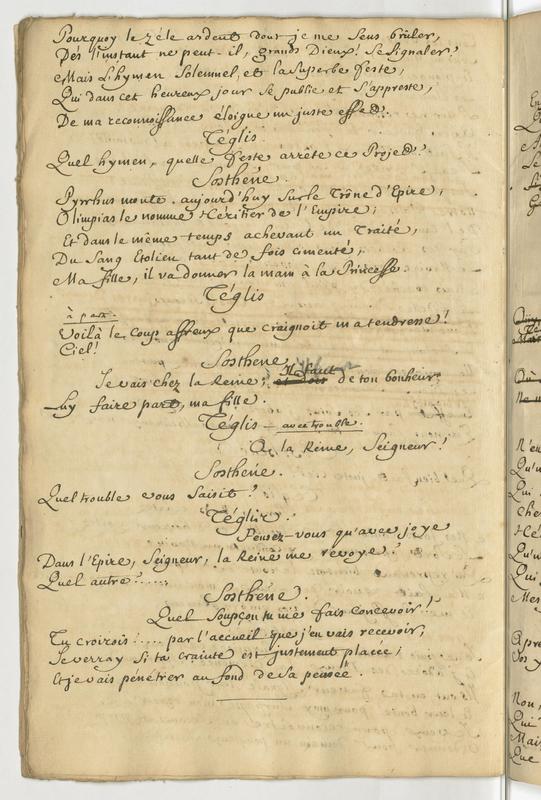 Pourquoy le zéle ardent dont je me sens brûler,
Dès l'instant ne peut-il, grands Dieux! se signaler?
Mais L'hymen solemnel, et la superbe feste,
Qui dans cet heureux jour se publie et s'appreste,
De ma reconnoissance éloigne un juste effet.
Téglis
Quel hymen, quelle feste arrête ce Projet?
Sosthéne.
Pyrrhus monte aujourd'huy sur le Trône d'Epire;
Olimpias le nomme Héritier de l'Empire;
Et dans le même temps achevant un Traité,
Du Sang Etolien tant de fois cimenté;
Ma fille, il va donner la main à la Princesse
Téglis
à part.
Voilà le coup affreux que craignoit ma tendresse!
Ciel!
Sosthene.
Il faut
Je vais chez la Reine; et dois de ton bonheur
Luy faire part, ma fille.
Téglis avec trouble.
A la Reine, Seigneur!
Sosthene.
Quel trouble vous saisit?
Téglis.
Pensez-vous qu'avec joye
Dans l'Epire, Seigneur, la Reine me revoye?
Quel autre?.....
Sosthéne.
Quel soupçon tu me fais concevoir!
Tu croirois!.... par l'accueil que j'en vais recevoir,
Je verray si ta crainte est justement placée;
Et je vais pénétrer au fond de sa pensée.